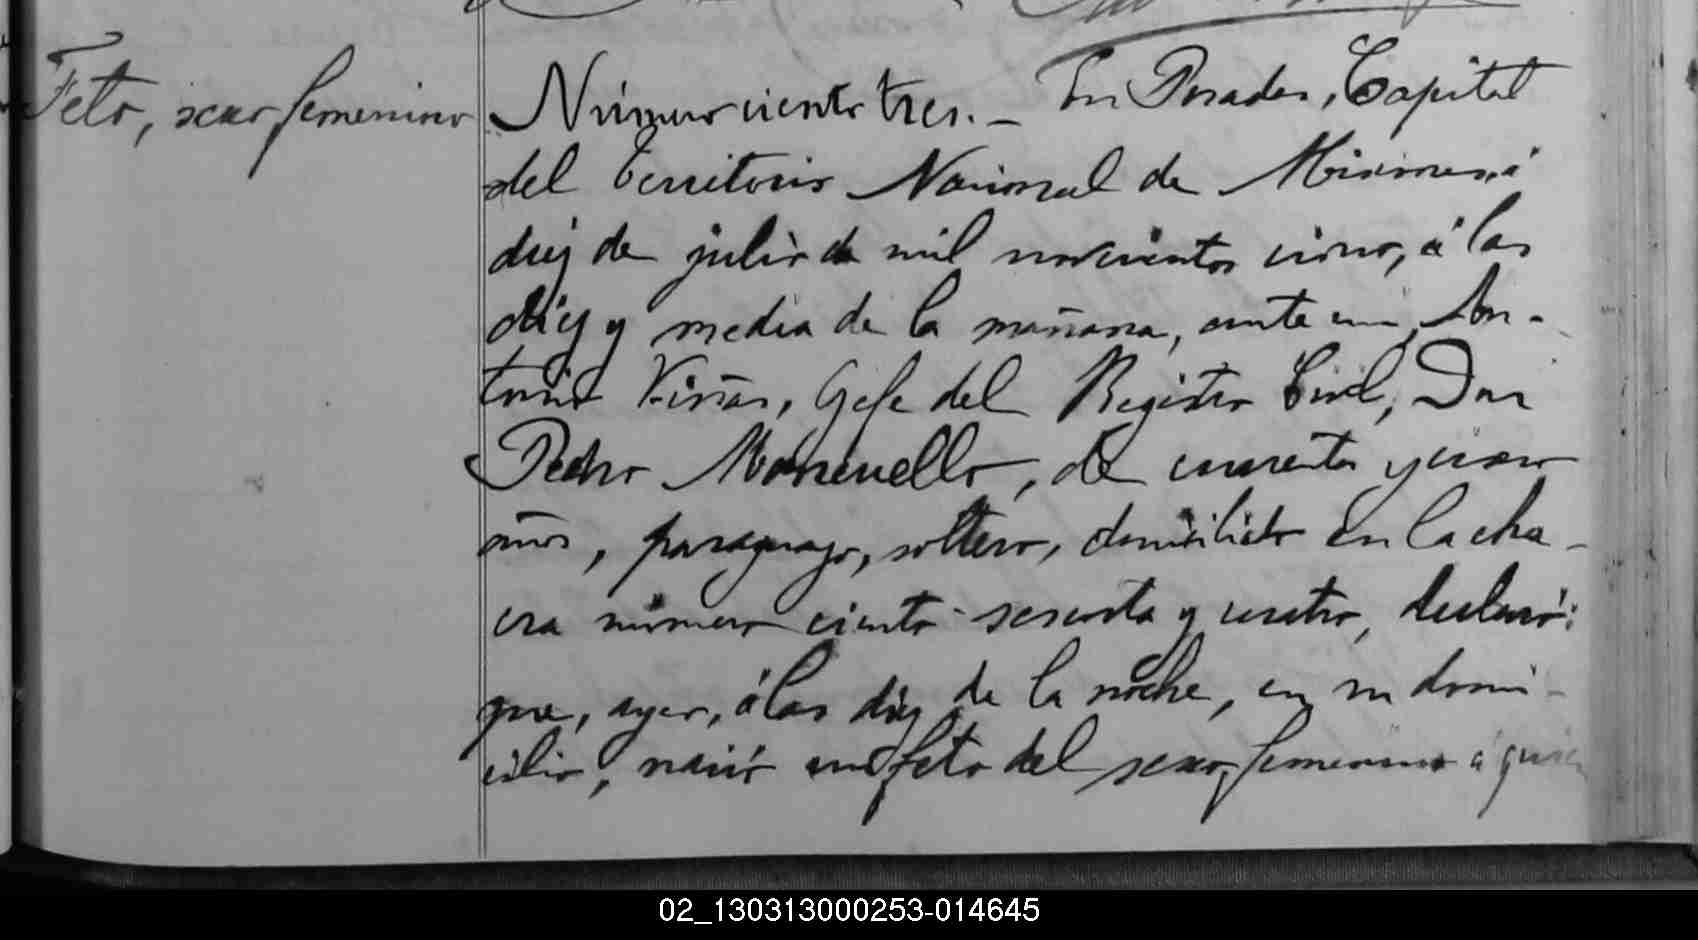 Feto, sexo femenino
Número ciento tres. — En Posadas, Capital
del Territorio Nacional de Misiones, á
diez de julio de mil novecientos cinco, á las
diez y media de la mañana, ante mi, An-
tonio Viñas, Gefe del Registro Civil, Don
Pedro, de cuarenta y cinco
años, paraguayo, soltero, domiciliado en la cha-
cra número ciento sesenta y cuatro, declaró:
que, ayer, á las diez de la noche, en su domi-
cilio, nació un feto del sexo femenino á quien
02_130313000253-014645